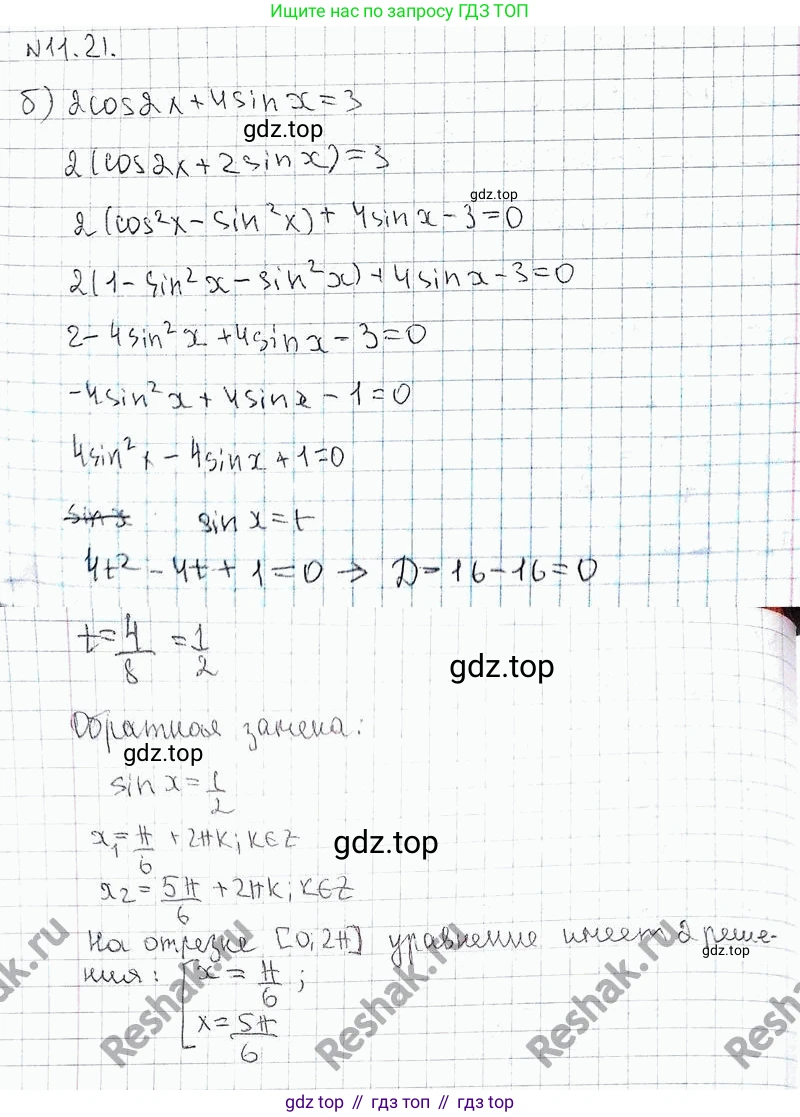 Ищите нас по запросу ГДЗ ТОП
N11.21.
б) 2cos2x+4sinx=3
gdz.top
2(cos2x+2sinx)=3
gdz.top
2(cos²x-sin²x)+4sinx-3=0
2(1-sin²x-sin²x)+4sinx-3=0
2-4sin²x+4sinx-3=0
-4sin²x+4sinx-1=0
4sin²x-4sinx+1=0
sinx sinx=t
4t²-4t+1=0 → D=16-16=0
t=4/8=1/2
gdz.top
Обратная замена:
gdz.top
gdz.top
sinx=1/2
x₁=π/6+2πk; k∈Z
gdz.top
x₂=5π/6+2πk; k∈Z
На отрезке [0; 2π] уравнение имеет 2 реше-
gdz.top
ния: [x=π/6;
x=5π/6
Reshak.ru
Reshak.ru
Reshak.ru
Reshak.ru
gdz.top // гдз топ // gdz.top